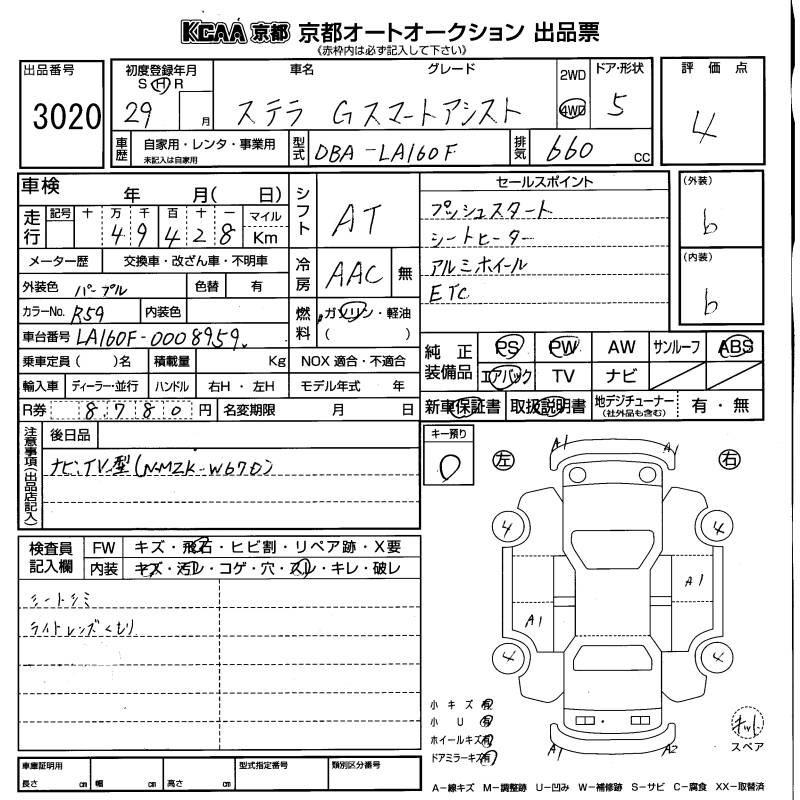 KCAA 京都 京都オートオークション 出品票
《赤枠内は必ず記入して下さい》
出品番号 3020
初度登録年月 S H R 29 月
車名 グレード ステラ Gスマートアシスト
2WD 4WD
ドア・形状 5
評価点 4
車歴 自家用・レンタ・事業用 未記入は自家用
型式 DBA-LA160F
排気 660 cc
車検 年 月( 日)
シフト AT
セールスポイント
プッシュスタート
シートヒーター
アルミホイール
ETC
(外装) b
(内装) b
走行 記号 十 万 千 百 十 一 マイル Km
4 9 4 2 8
メーター歴 交換車・改ざん車・不明車
冷房 AAC 無
外装色 パープル 色替 有
カラーNo. R59 内装色
燃料 ガソリン・軽油 ( )
車台番号 LA160F-0008959
乗車定員 ( )名 積載量 Kg NOX 適合・不適合
輸入車 ディーラー・並行 ハンドル 右H・左H モデル年式 年
R券 8780円 名変期限 月 日
純正装備品 PS PW AW サンルーフ ABS
エアバック TV ナビ
新車保証書 取扱説明書 地デジチューナー (社外品も含む) 有・無
注意事項(出品店記入)
後日品
ナビ、TV、型(NMZK-W67D)
キー預り 0
左 右
A1 A1
4 4
A1
A1
4 4
A1 A2
検査員記入欄 FW キズ・飛石・ヒビ割・リペア跡・X要
内装 キズ・汚レ・コゲ・穴・スレ・キレ・破レ
シートシミ
ライトレンズくもり
小キズ 有
小U 有
ホイールキズ 有
ドアミラーキズ 有
キット
スペア
車庫証明用 長さ cm 幅 cm 高さ cm
型式指定番号 類別区分番号
A-線キズ M-調整跡 U-凹み W-補修跡 S-サビ C-腐食 XX-取替済